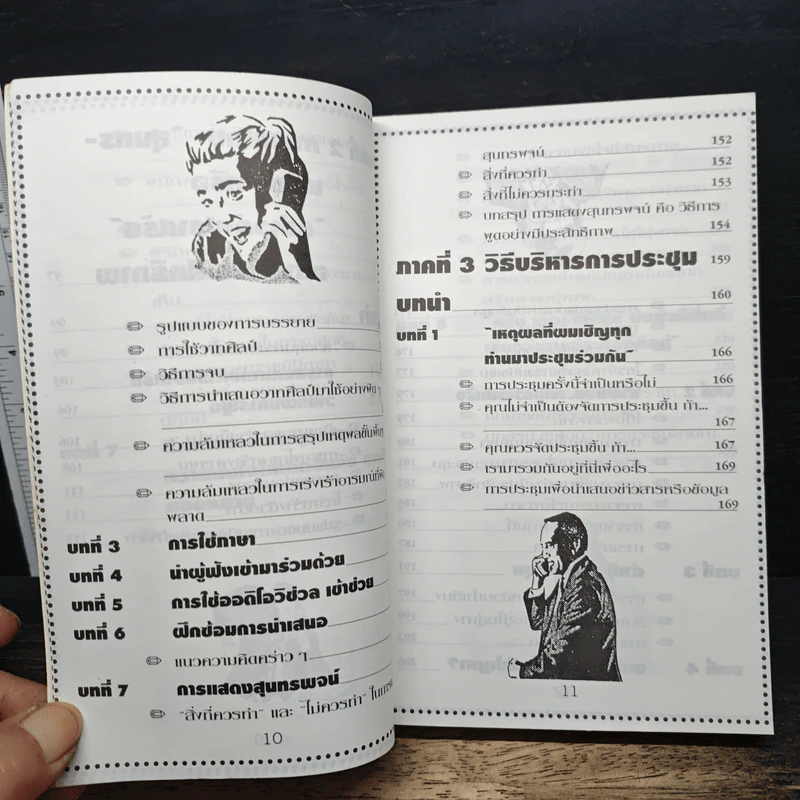 รูปแบบของการบรรยาย
การใช้วาทศิลป์
วิธีการจบ
วิธีการนำเสนอวาทศิลป์มาใช้อย่างผิด ๆ
ความล้มเหลวในการสรุปเหตุผลขั้นพื้นฯ
ความล้มเหลวในการเร่งเร้าอารมณ์ที่ผิด
พลาด
บทที่ 3 การใช้ภาษา
บทที่ 4 นำผู้ฟังเข้ามาร่วมด้วย
บทที่ 5 การใช้ออดิโอวิช่วล เข้าช่วย
บทที่ 6 ฝึกซ้อมการนำเสนอ
แนวความคิดคร่าว ๆ
บทที่ 7 การแสดงสุนทรพจน์
"สิ่งที่ควรทำ" และ "ไม่ควรทำ" ในการ
10
สุนทรพจน์ 152
สิ่งที่ควรทำ 152
สิ่งที่ไม่ควรกระทำ 153
บทสรุป การแสดงสุนทรพจน์ คือ วิธีการ
พูดอย่างมีประสิทธิภาพ 154
ภาคที่ 3 วิธีบริหารการประชุม 159
บทนำ 160
บทที่ 1 "เหตุผลที่ผมเชิญทุก
ท่านมาประชุมร่วมกัน" 166
การประชุมครั้งนี้จำเป็นหรือไม่ 166
คุณไม่จำเป็นต้องจัดการประชุมขึ้น ถ้า...
167
คุณควรจัดประชุมขึ้น ถ้า... 167
เรามารวมกันอยู่ที่นี่เพื่ออะไร 169
การประชุมเพื่อนำเสนอข่าวสารหรือข้อมูล
169
11